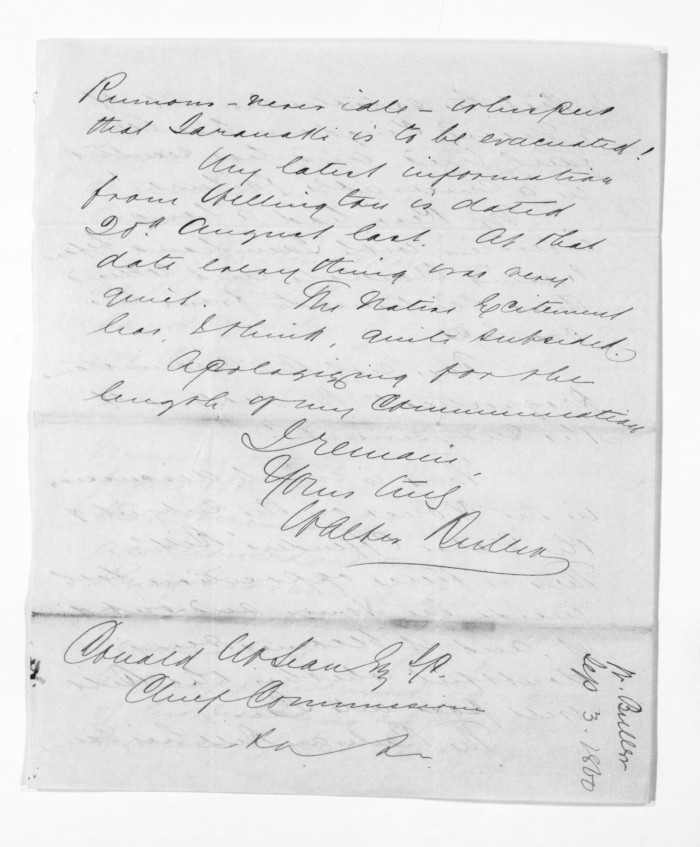 Rumour – never idle – whispers
that Taranaki is to be evacuated!
My latest information
from Wellington is dated
28th August last. At that
date everything was very
quiet. The Native Excitement
has, I think, quite subsided.
Apologizing for the
length of my Communication
I remain,
Yours truly
Walter Buller
Donald McLean Esq
Chief Commissioner
W. Buller
Sep 3. 1860